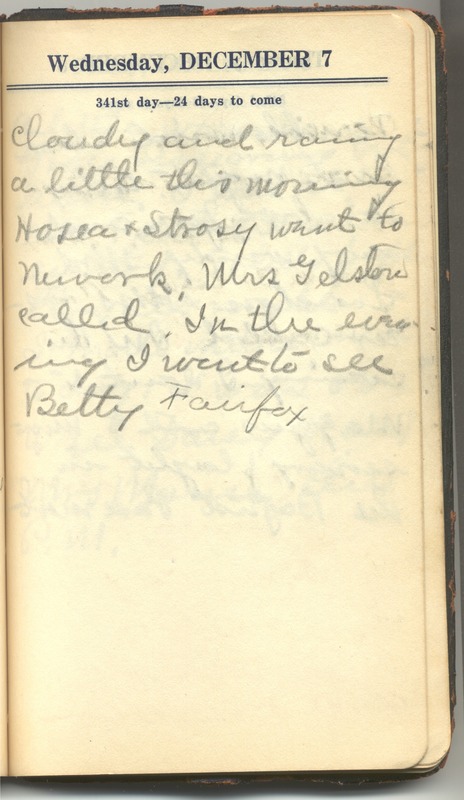 Wednesday, DECEMBER 7
341st day—24 days to come
cloudy and rainy
a little this morning
Hosea & Strosy went to
Newark. Mrs Gelston
called. In the even-
ing I went to see
Betty Fairfox